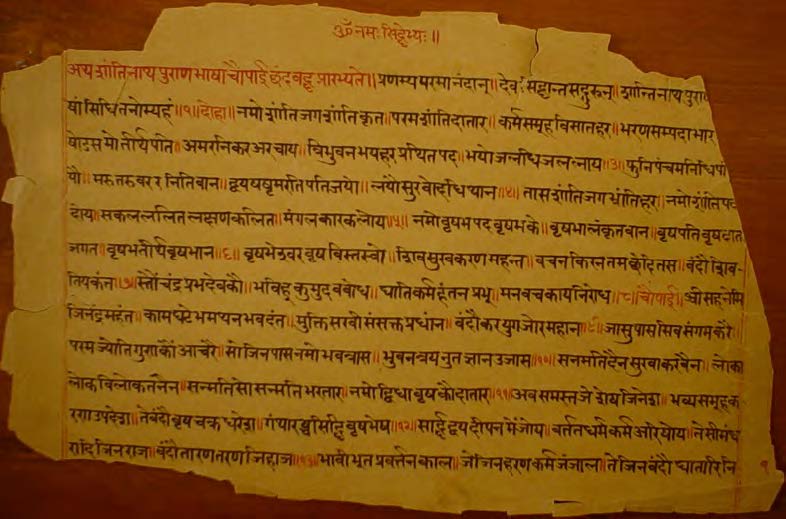 ॐ नमः सिद्धेभ्यः ॥
अथ शांतिनाथ पुराण भाषा चौपाई छंद बद्ध प्रारभ्यते॥ प्रणम्य परमानंदान्॥ देव सद्धान्त सद्गुरून्॥ शान्तिनाथ पुरा
॥१॥ दोहा॥ नमो शांति जग शांति कृत॥ परम शांति दातार॥ कर्म समूह विसात हर॥ भरण सम्पदा भार
तीर्थ पति॥ अमर निकर अरचाय॥ त्रिभुवन भय हर प्रथित पद॥ भयो जलधि जल न्नाय॥३॥ फुनि पंचम
मरु तरु वर र निति वान॥ द्वय वृष रति पति जयो॥ ध्यान॥४॥ तास शांति जग भ्रांति हर॥ नमो शांति पद
दोय॥ सकल ललित लक्षण कलित॥ मंगल कारक लोय॥५॥ नमो वृषभ पद वृषभ के॥ वृषभालंकृत वान॥ वृषपति वृष
जगत॥ वृषभ तीर्थ वृष भान॥६॥ वृषभेश्वर वृष विस्तस्यो॥ शिव सुख करण महन्त॥ वचन किरन तम छेदि तस॥ वंदौ शिव-
तिय कंन॥७॥ स्तौं चंद्र प्रभ देव कौ॥ भवि कुमुद वबोध॥ घाति कर्म हंतन प्रभू॥ मन वच काय निरोध॥८॥ चौपाई॥ श्री सह नेमि
जिनेंद्र महंत॥ काम भ मथन भवदंत॥ मुक्ति सखो संसक्त प्रधान॥ वंदौ कर युग जोर महान॥९॥ जासु पास सिव संगम करै॥
परम ज्योति गुण कौं आचरे॥ सो जिन पास नमो भव त्रास॥ भुवन त्रय नुत ज्ञान उजास॥१०॥ सनमति दैन सुखाकर बैन॥ लोका
लोक विलोकत नैन॥ सन्मति सो सन्मति भरतार॥ नमो द्विधा वृष कौ दातार॥११॥ अव समस्त जे शेष जिनेश॥ भव्य समूह क-
रण उपदेश॥ ते वंदौ वृष चक्र धरेश॥ वृषभेष॥१२॥ सार्द्ध द्वय दीपन में जोय॥ वर्तत धर्म कर्म सोय॥ सीमंध
रादि जिनराज॥ वंदौ तारण तरण जिहाज॥१३॥ भावी भूत प्रवर्त्तन काल॥ जे जिन हरण कर्म जंजाल॥ ते जिन वंदौ घातारि नि-
१